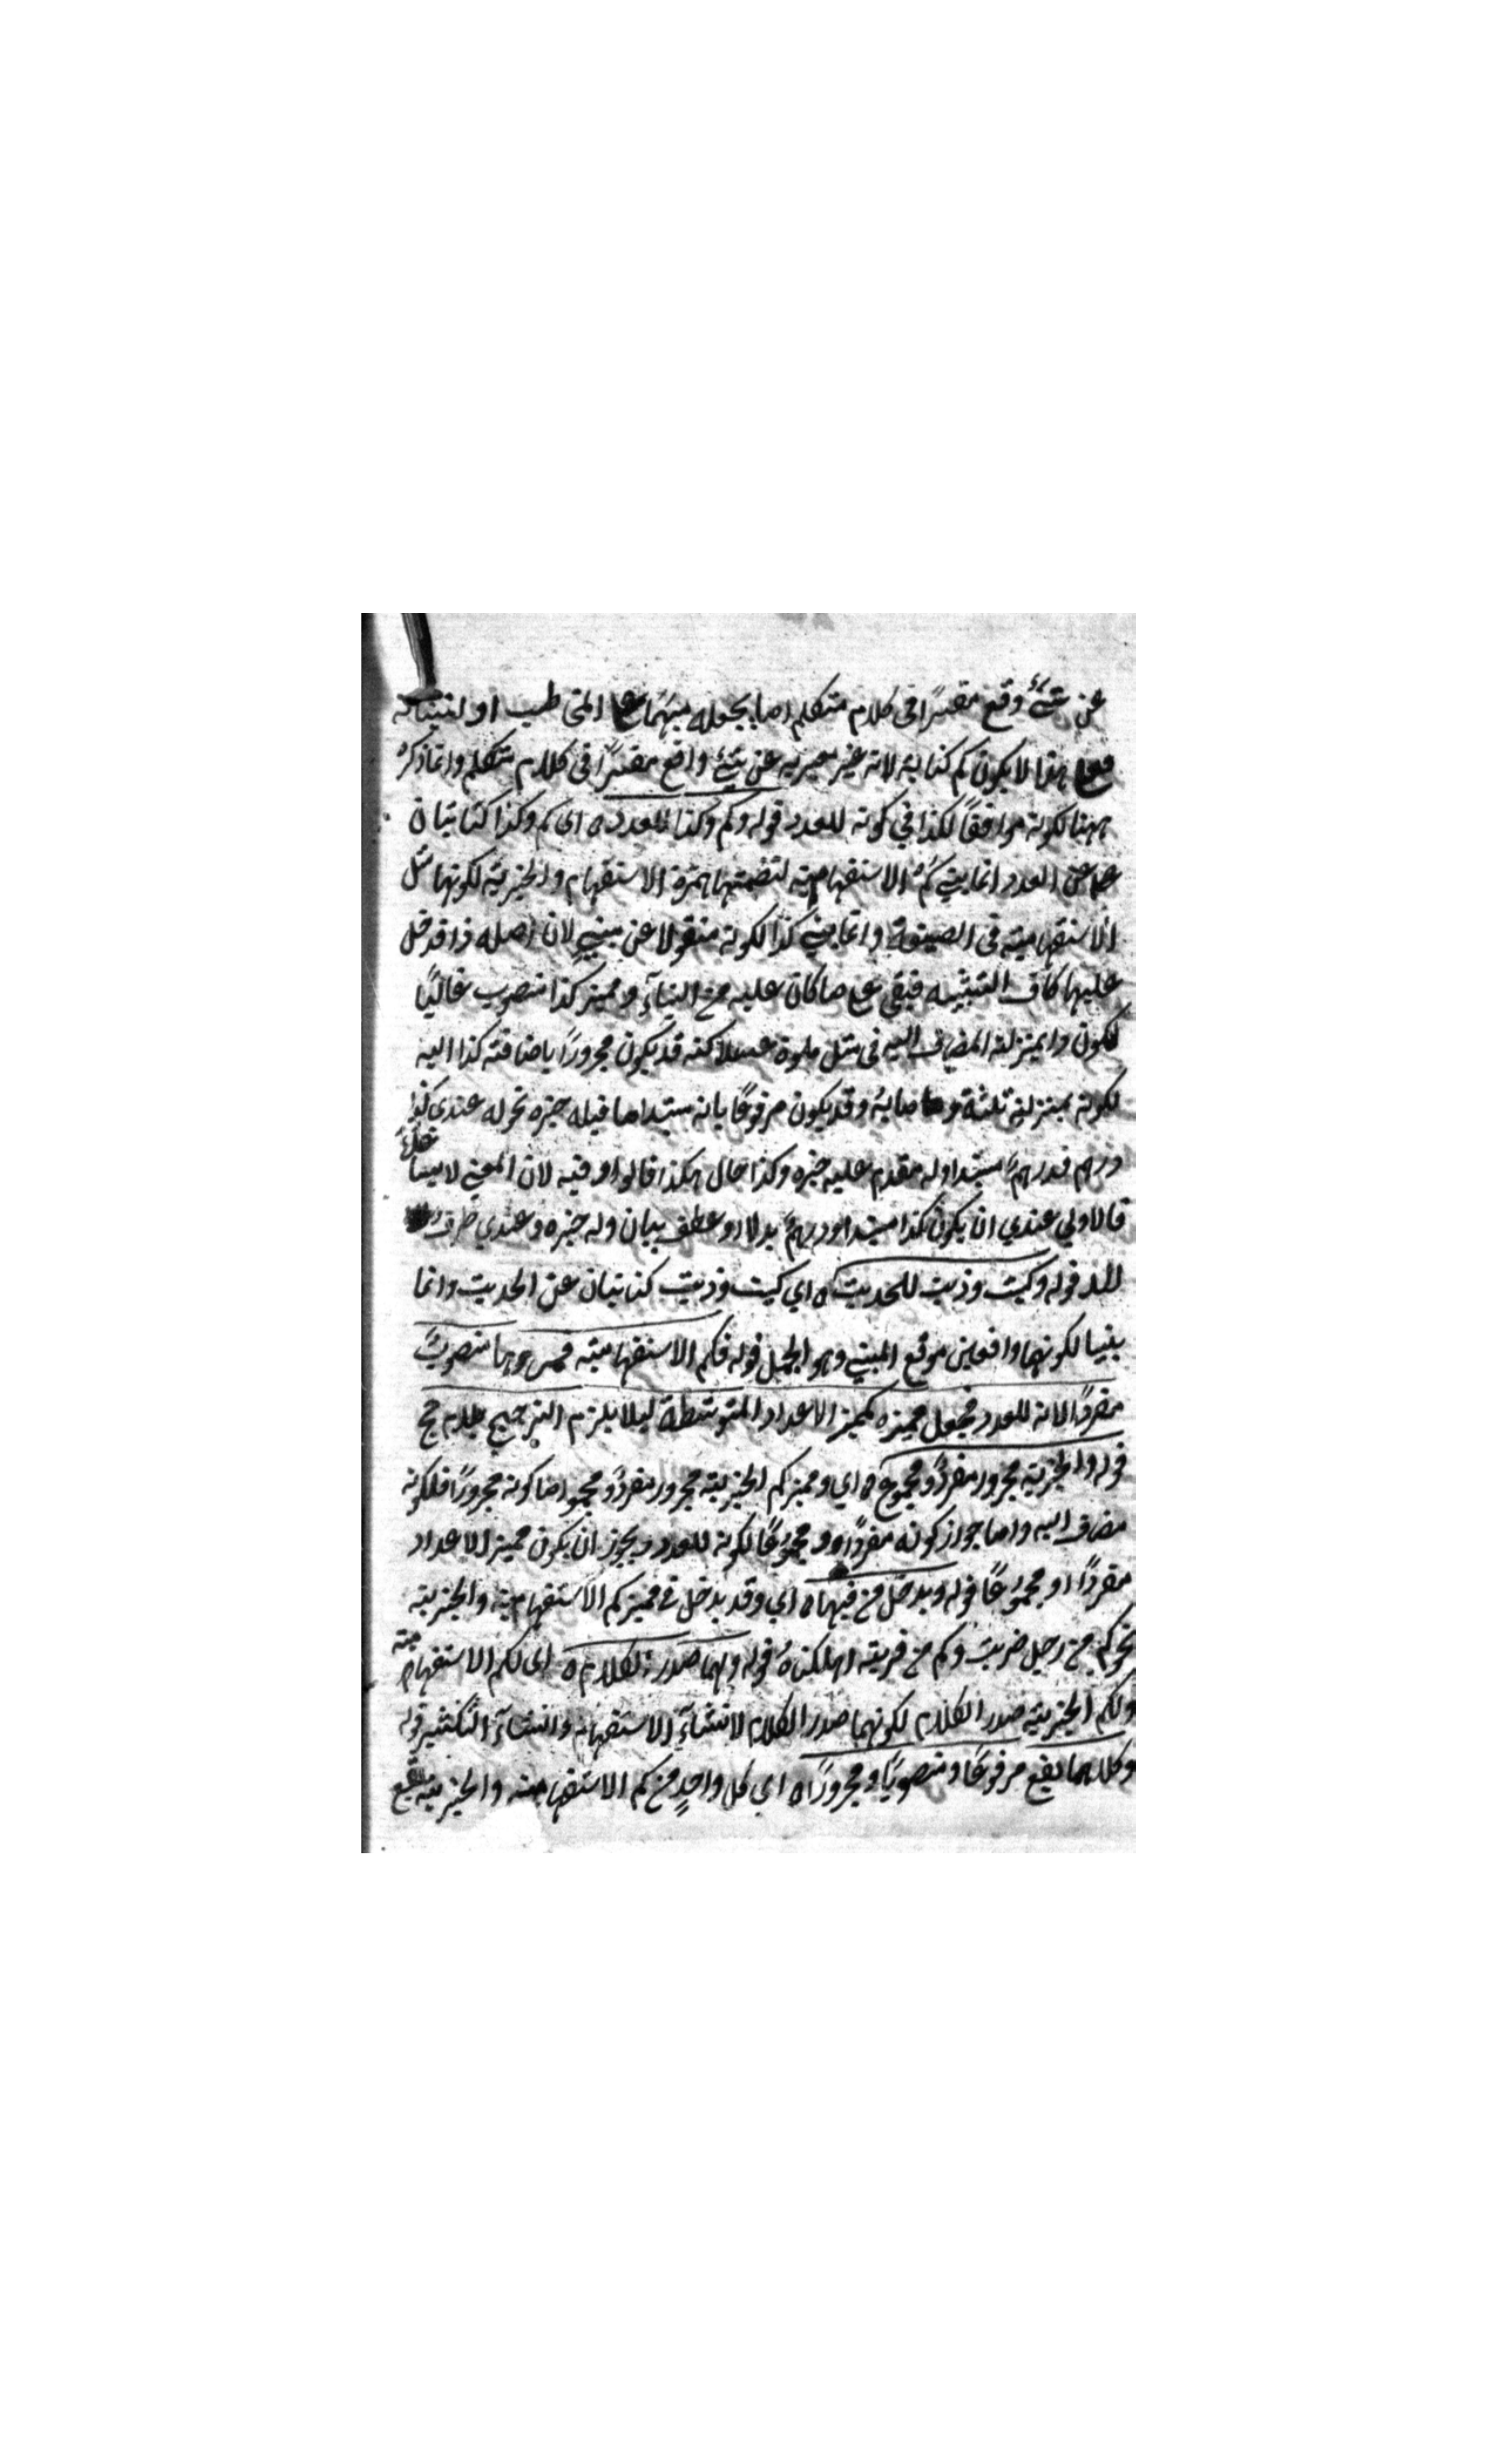 عن شيء وقع مفسرًا في كلام متكلم اما يجعله مبهمًا على المخاطب او لنسيانه
فعلى هذا لا يكون كم كناية لانه غير معبر به عن شيء واقع مفسرًا في كلام متكلم وانما ذكره
ههنا لكونه موافقًا لكذا في كونه للعدد قوله وكم وكذا للعدد ه اى كم وكذا كنايتان
عن العدد انما بني كم الاستفهامية لتضمنها همزة الاستفهام والخبرية لكونها مثل
الاستفهامية في الصيغة وانما بني كذا لكونه منقولا عن مبني لان اصله ذا قد دخل
عليها كاف التشبيه فبقي على ما كان عليه من البناء ومميز كذا منصوب غالبًا
لكون ذا بمنزلة المضاف اليه في مثل ملوه عسلا كنه قد يكون مجرورًا باضافته كذا اليه
لكونه بمنزلة ثلثة و ماية وقد يكون مرفوعًا بانه مبتدا ما قبله خبره نحو له عندى كذا
درهم فدرهم مبتدا وله مقدم عليه خبره وكذا حال هكذا قالوا وفيه لان المعنى لا يساعده
فالاولي عندي ان يكون كذا مبتدا ودرهم بدلا او عطف بيان وله خبره وعندي ظرف
قوله وكيت وذيت للحديث ه اي كيت وذيت كنايتان عن الحديث وانما
بنيا لكونهما واقعين موقع المبني وهو الجمل قوله فكم الاستفهامية مميزها منصوب
مفردًا لانه للعدد فجعل مميزه كمميز الاعداد المتوسطة ليلا يلزم الترجيح بلا مرجح
قوله والخبرية مجرور مفرد ومجموع ه اي ومميز كم الخبرية مجرور مفرد ومجموع اما كونه مجرورًا فلكونه
مضاف اليه واما جواز كونه مفردًا و مجموعًا لكونه للعدد ويجوز ان يكون مميز الاعداد
مفردًا او مجموعًا قوله ويدخل من فيها ه اي وقد يدخل في مميز كم الاستفهامية والخبرية
نحو كم من رجل ضربت وكم من قرية اهلكناه قوله ولهما صدر الكلام ه اى لكم الاستفهامية
ولكم الخبرية صدر الكلام لكونهما صدر الكلام لانشاء الاستفهام وانشاء التكثير قوله
وكلاهما يقع مرفوعًا ومنصوبًا ومجرورًا ه اي كل واحدٍ من كم الاستفهامية والخبرية يقع